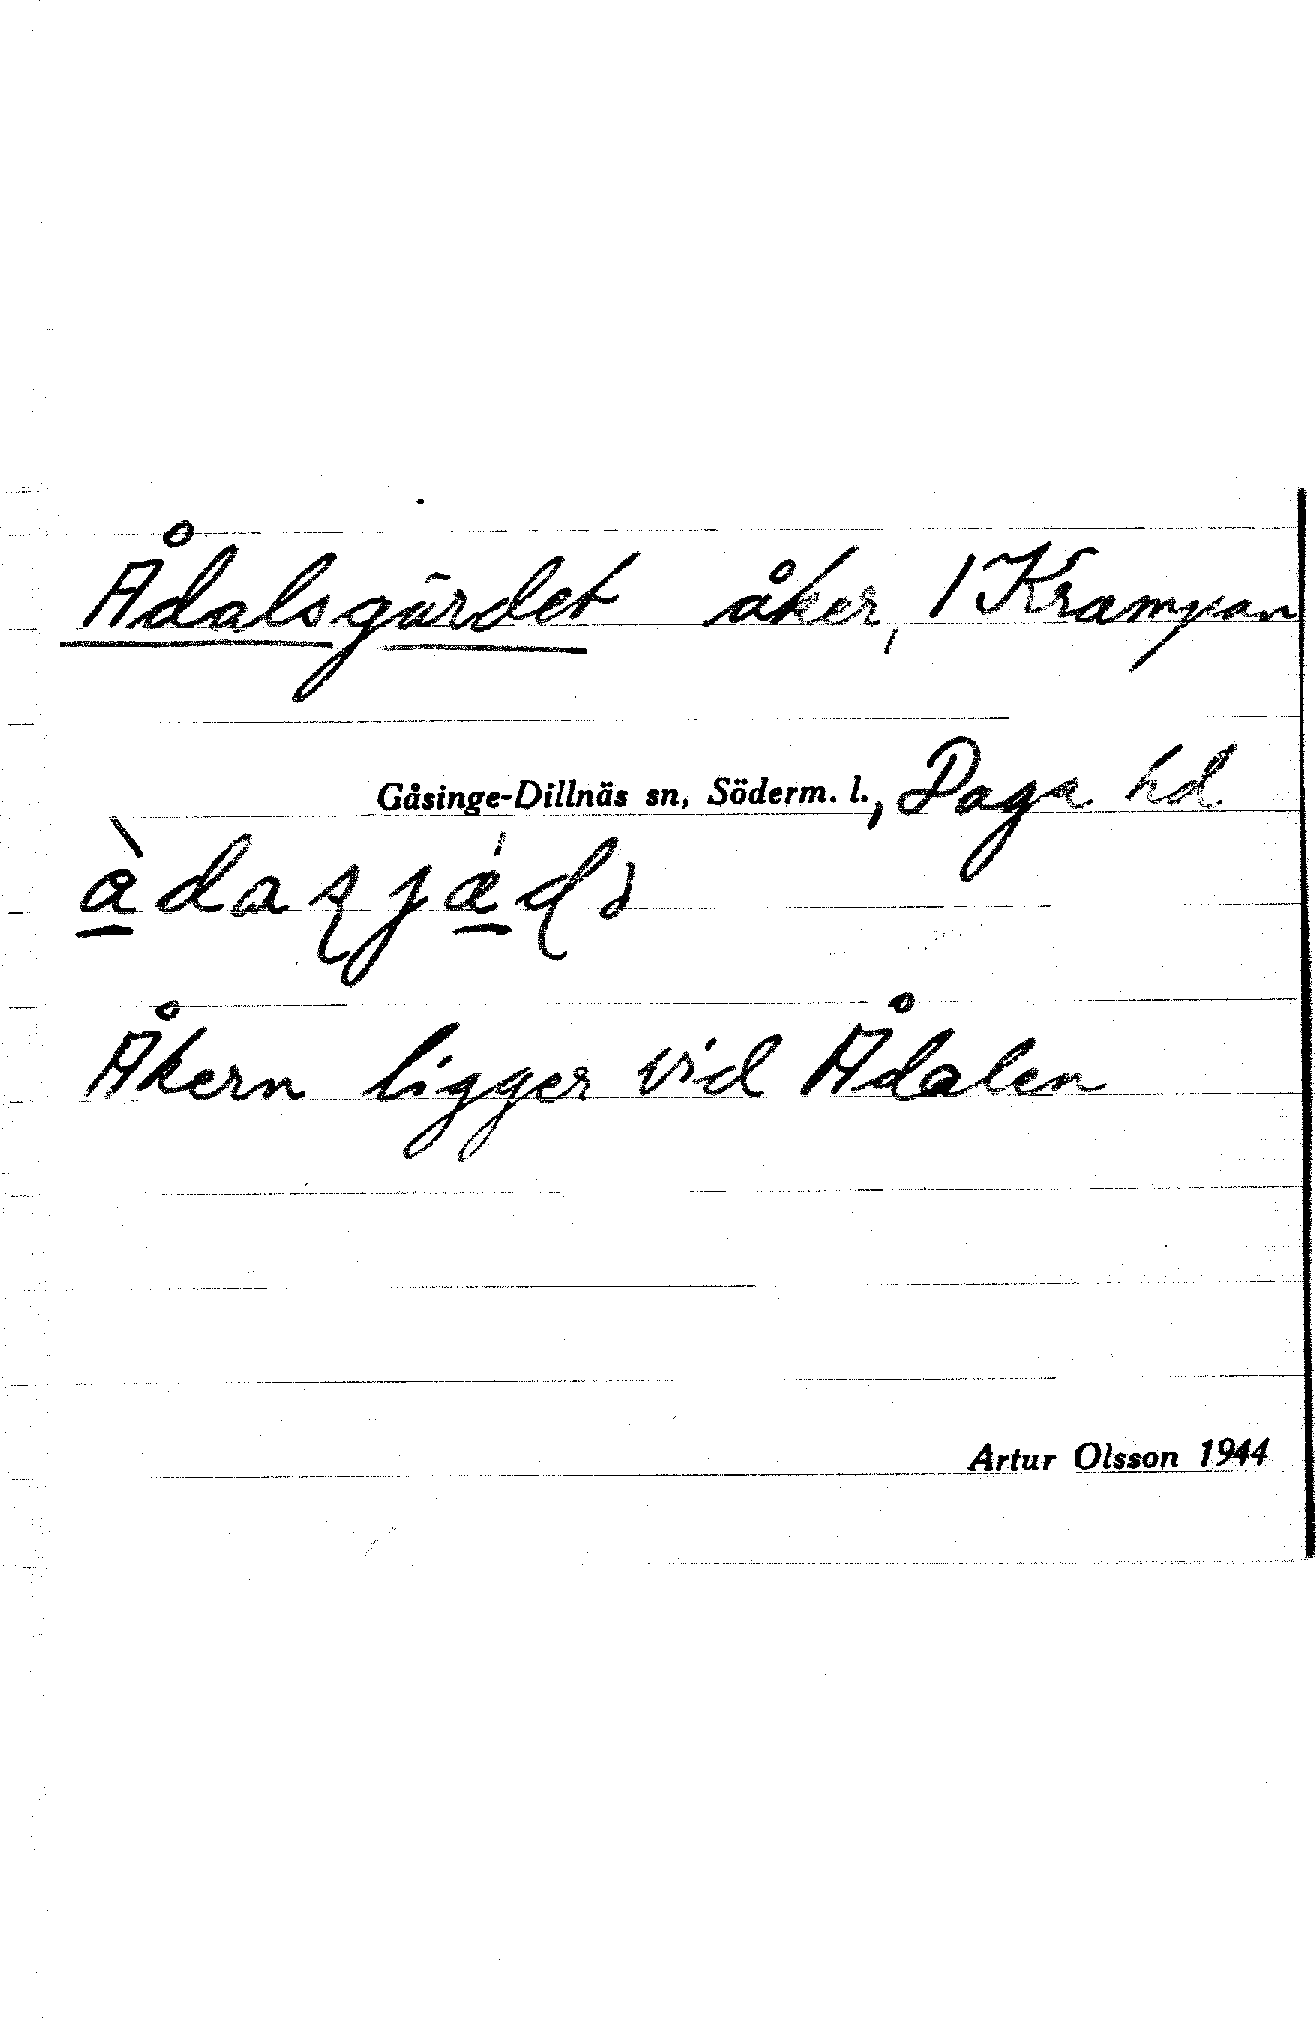 Ådalsgärdet åker, 1 Krampan
Gåsinge-Dillnäs sn, Söderm. l., Daga hd
Åkern ligger vid Ådalen
Artur Olsson 1944